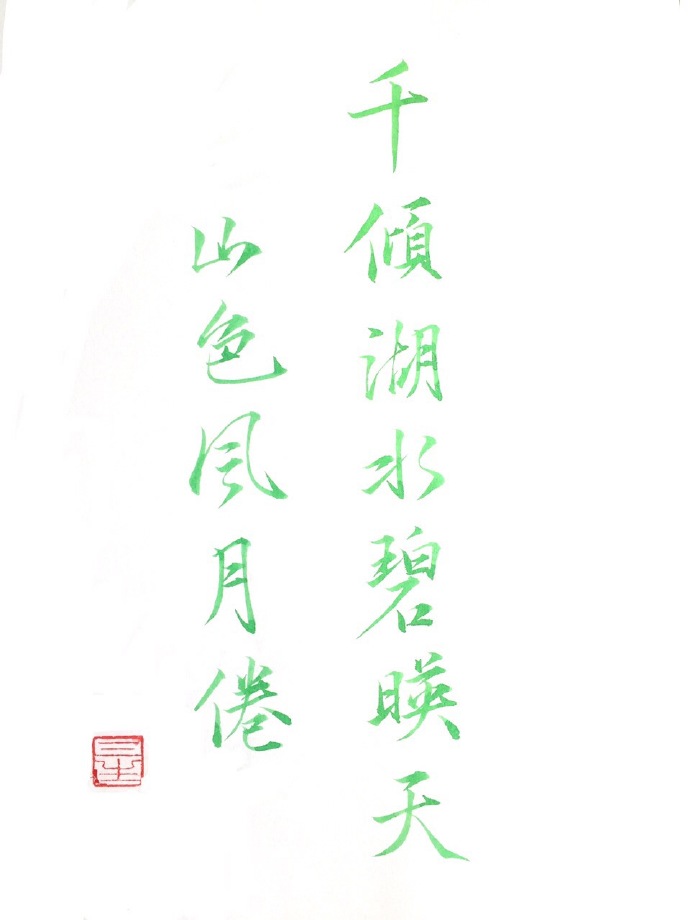 千傾湖水碧暎天
山色风月倦